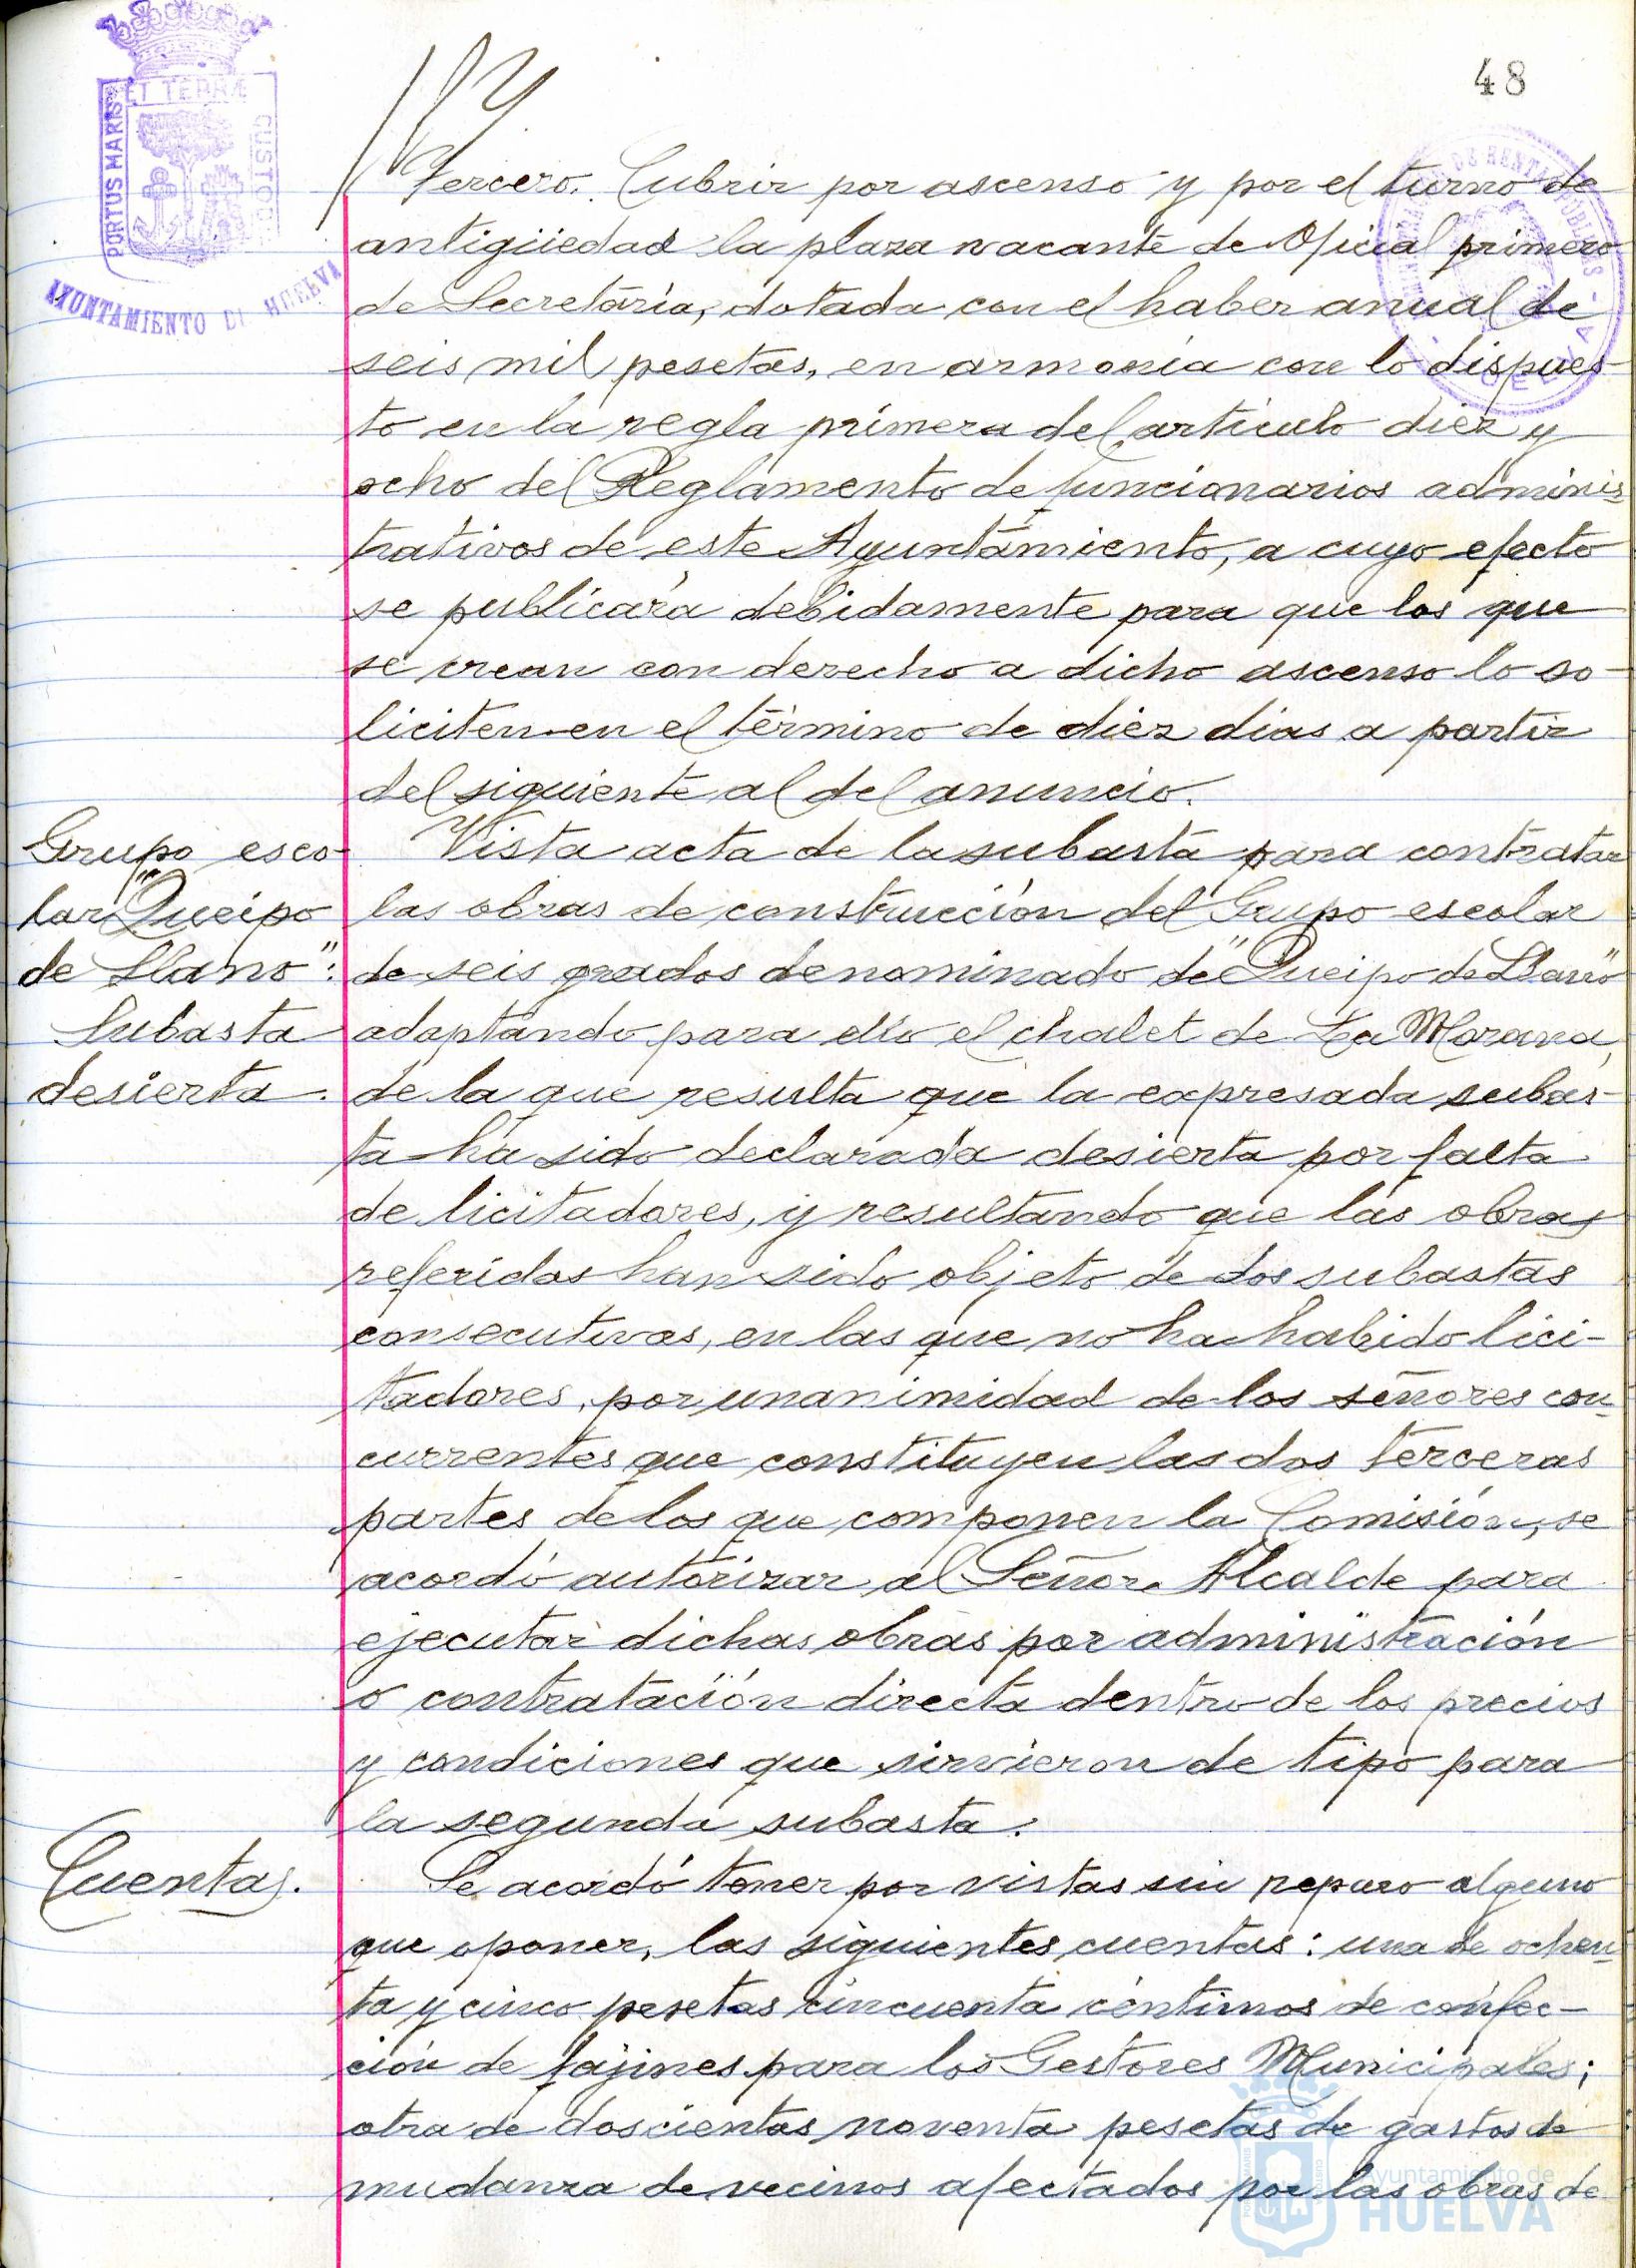 48
PORTUS MARIS
ET TERRÆ
CUSTOD
AYUNTAMIENTO DE HUELVA
Tercero. Cubrir por ascenso y por el turno de
antigüedad la plaza vacante de Oficial primero
de Secretaría, dotada con el haber anual de
seis mil pesetas, en armonía con lo dispues-
to en la regla primera del artículo diez y
ocho del Reglamento de funcionarios adminis
trativos de este Ayuntamiento, a cuyo efecto
se publicará debidamente para que los que
se crean con derecho a dicho ascenso lo so-
liciten en el término de diez días a partir
del siguiente al del anuncio.
Grupo esco-
lar "Queipo
de Llano":
Subasta
desierta.
Vista acta de la subasta para contratar
las obras de construcción del Grupo escolar
de seis grados denominado de "Queipo de Llano"
adaptando para ello el chalet de La Morana,
de la que resulta que la expresada subas-
ta ha sido declarada desierta por falta
de licitadores, y resultando que las obras
referidas han sido objeto de dos subastas
consecutivas, en las que no ha habido lici-
tadores, por unanimidad de los señores con
currentes que constituyen las dos terceras
partes de los que componen la Comisión, se
acordó autorizar al Señor Alcalde para
ejecutar dichas obras por administración
o contratación directa dentro de los precios
y condiciones que sirvieron de tipo para
la segunda subasta.
Cuentas.
Se acordó tener por vistas sin reparo alguno
que oponer, las siguientes cuentas: una de ochen
ta y cinco pesetas cincuenta céntimos de confec-
ción de fajines para los Gestores Municipales;
otra de doscientas noventa pesetas de gastos de
mudanza de vecinos afectados por las obras de
Ayuntamiento de
HUELVA